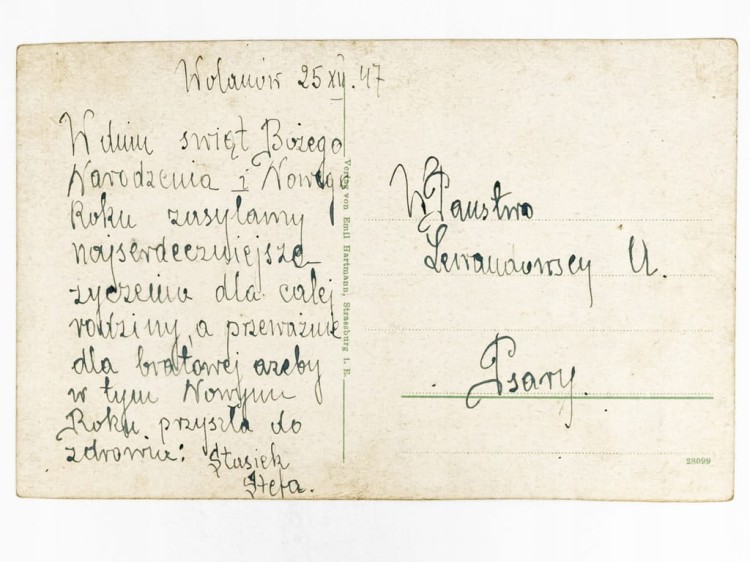 Wolanów 25 XII. 47
W dniu swięt Bożego
Narodzenia i Nowego
Roku zasylamy
najserdeczniejsze
życzenia dla całej
rodziny, a przeważnie
dla bratowej ażeby
w tym Nowym
Roku przyszła do
zdrowia:
Stasiek
Stefa.
Verlag von Emil Hartmann, Strassburg i. E.
W Państwo
Lewandowscy U.
Psary.
28099